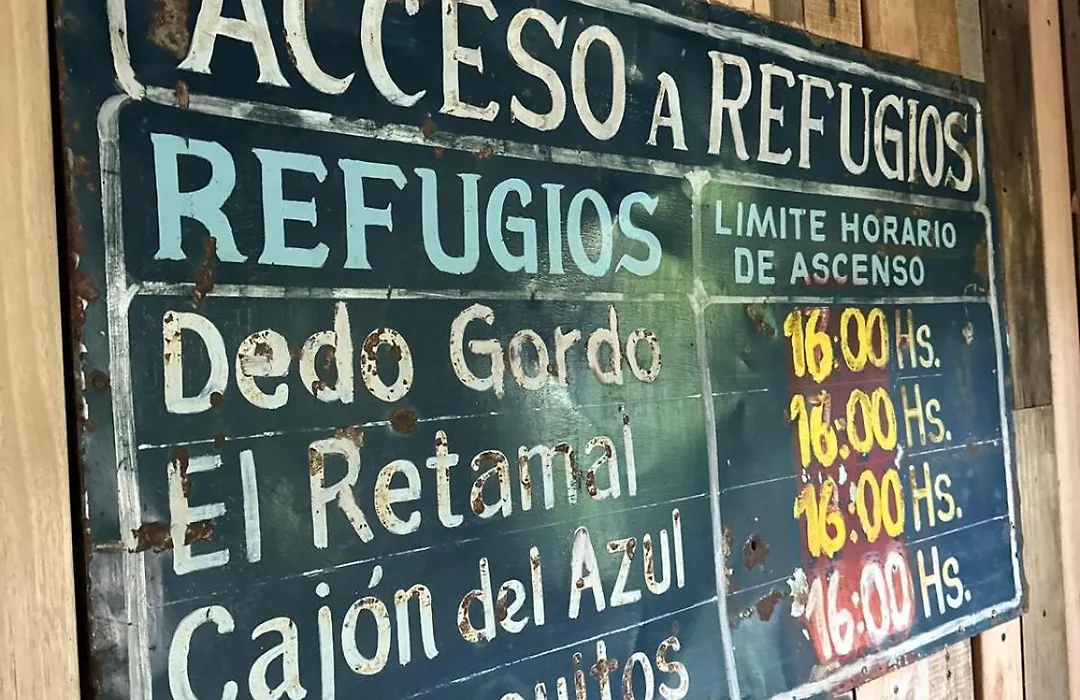 ACCESO A REFUGIOS
REFUGIOS
LIMITE HORARIO
DE ASCENSO
Dedo Gordo 16:00 Hs.
El Retamal 16:00 Hs.
Cajón del Azul 16:00 Hs.
16:00 Hs.